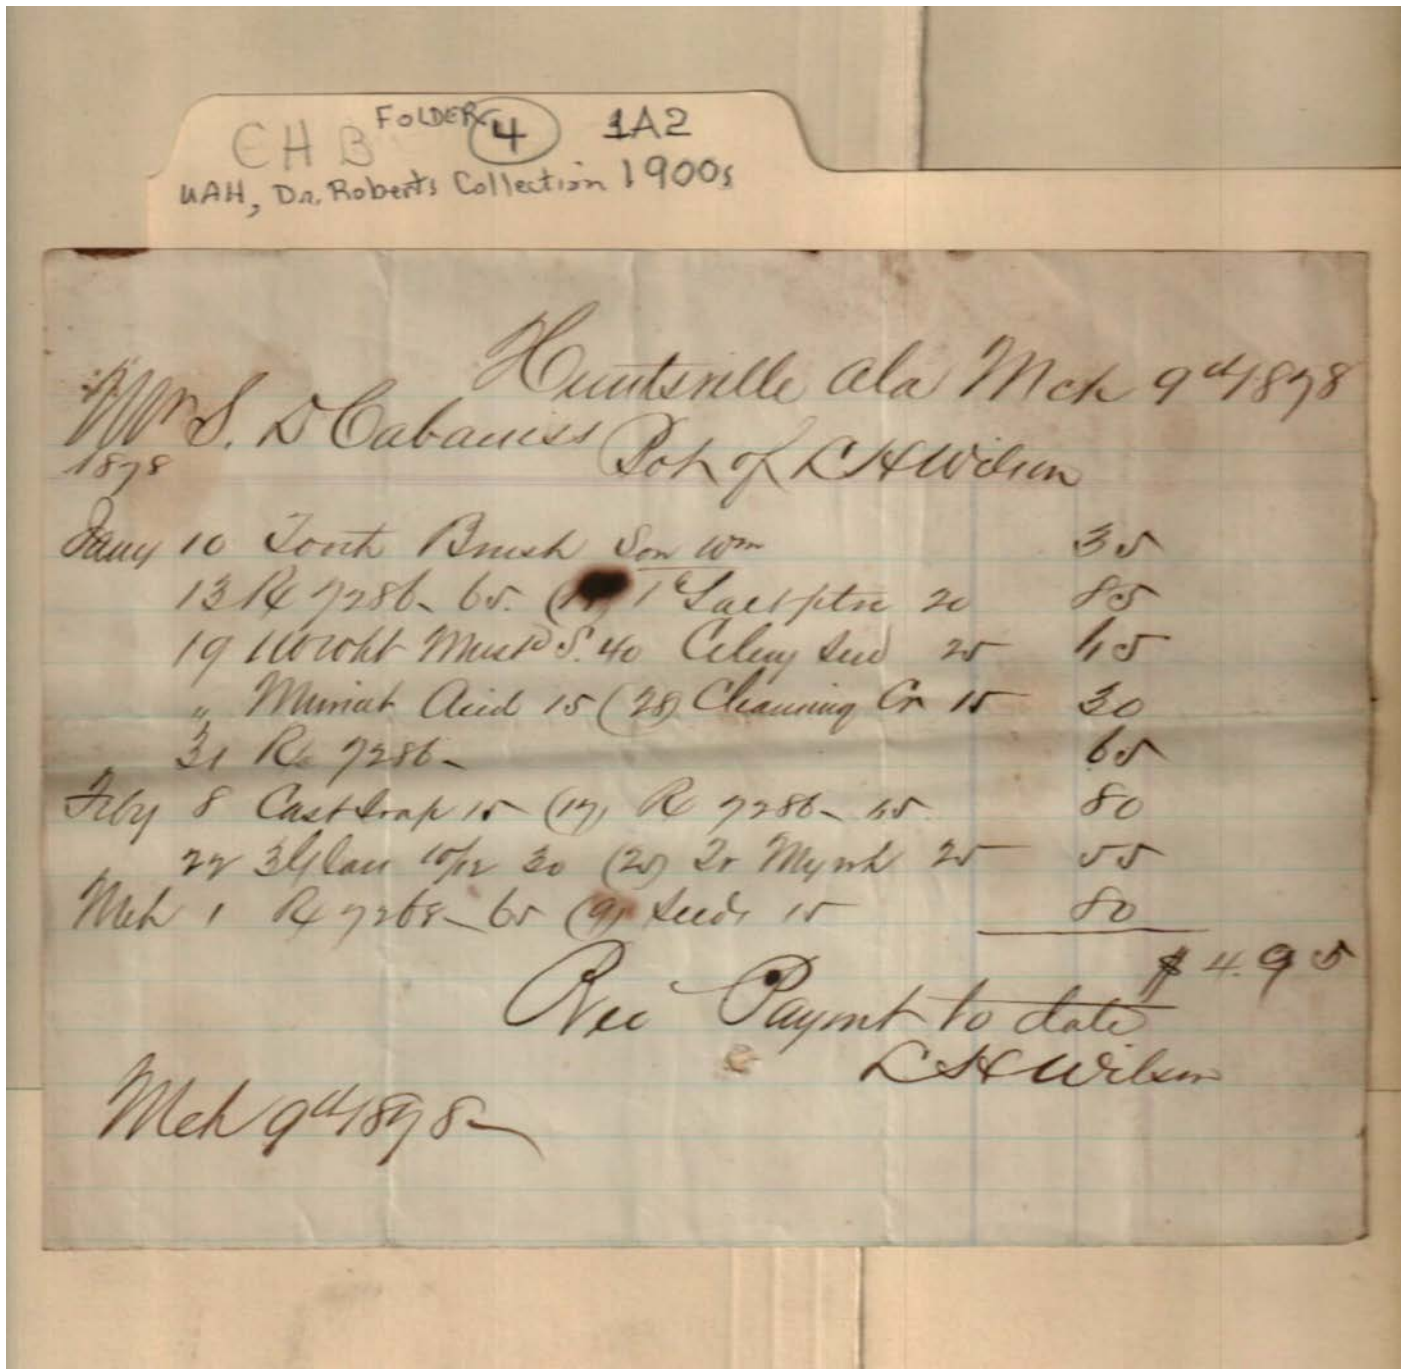 CHB FOLDER 4 1A2
UAH, Dr. Roberts Collection 1900s
Huntsville Ala Mch 9th 1878
Mr S. D Cabaniss
Bot of L H Wilson
1878
Jany 10 Tooth Brush Son Wm 35
13 Rx 7286 - 65. 1 20 85
19 Must S. 40 Celery Seed 25 65
" Muriat Acid 15 (28) Cleaning Cr 15 30
31 Rx 7286 - 65
Feby 8 Cast Soap 15 (17) Rx 7286 - 65. 80
22 3 Glass 10/12 30 (25) Tr Myrrh 25 55
Mch 1 Rx 7268 - 65 (9) Seeds 15 80
$ 4.95
Rec Paymt to date
L H Wilson
Mch 9th 1878 -